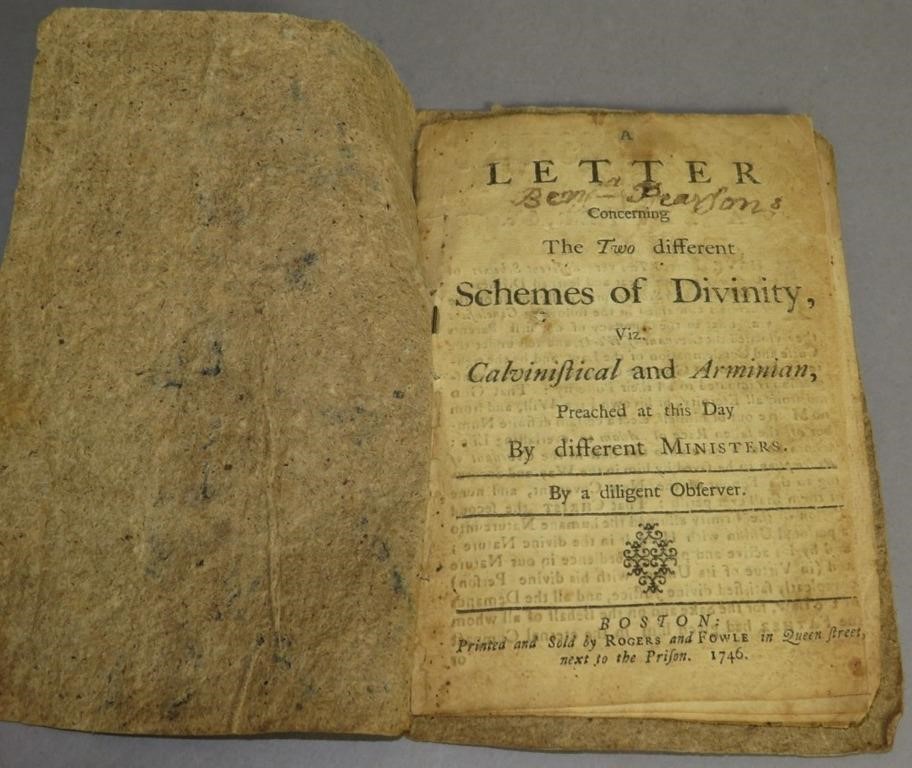 A
LETTER
Benja Pearsons
Concerning
The Two different
Schemes of Divinity,
Viz.
Calviniſtical and Arminian,
Preached at this Day
By different MINISTERS.
By a diligent Obſerver.
BOSTON:
Printed and Sold by ROGERS and FOWLE in Queen ſtreet,
next to the Priſon. 1746.